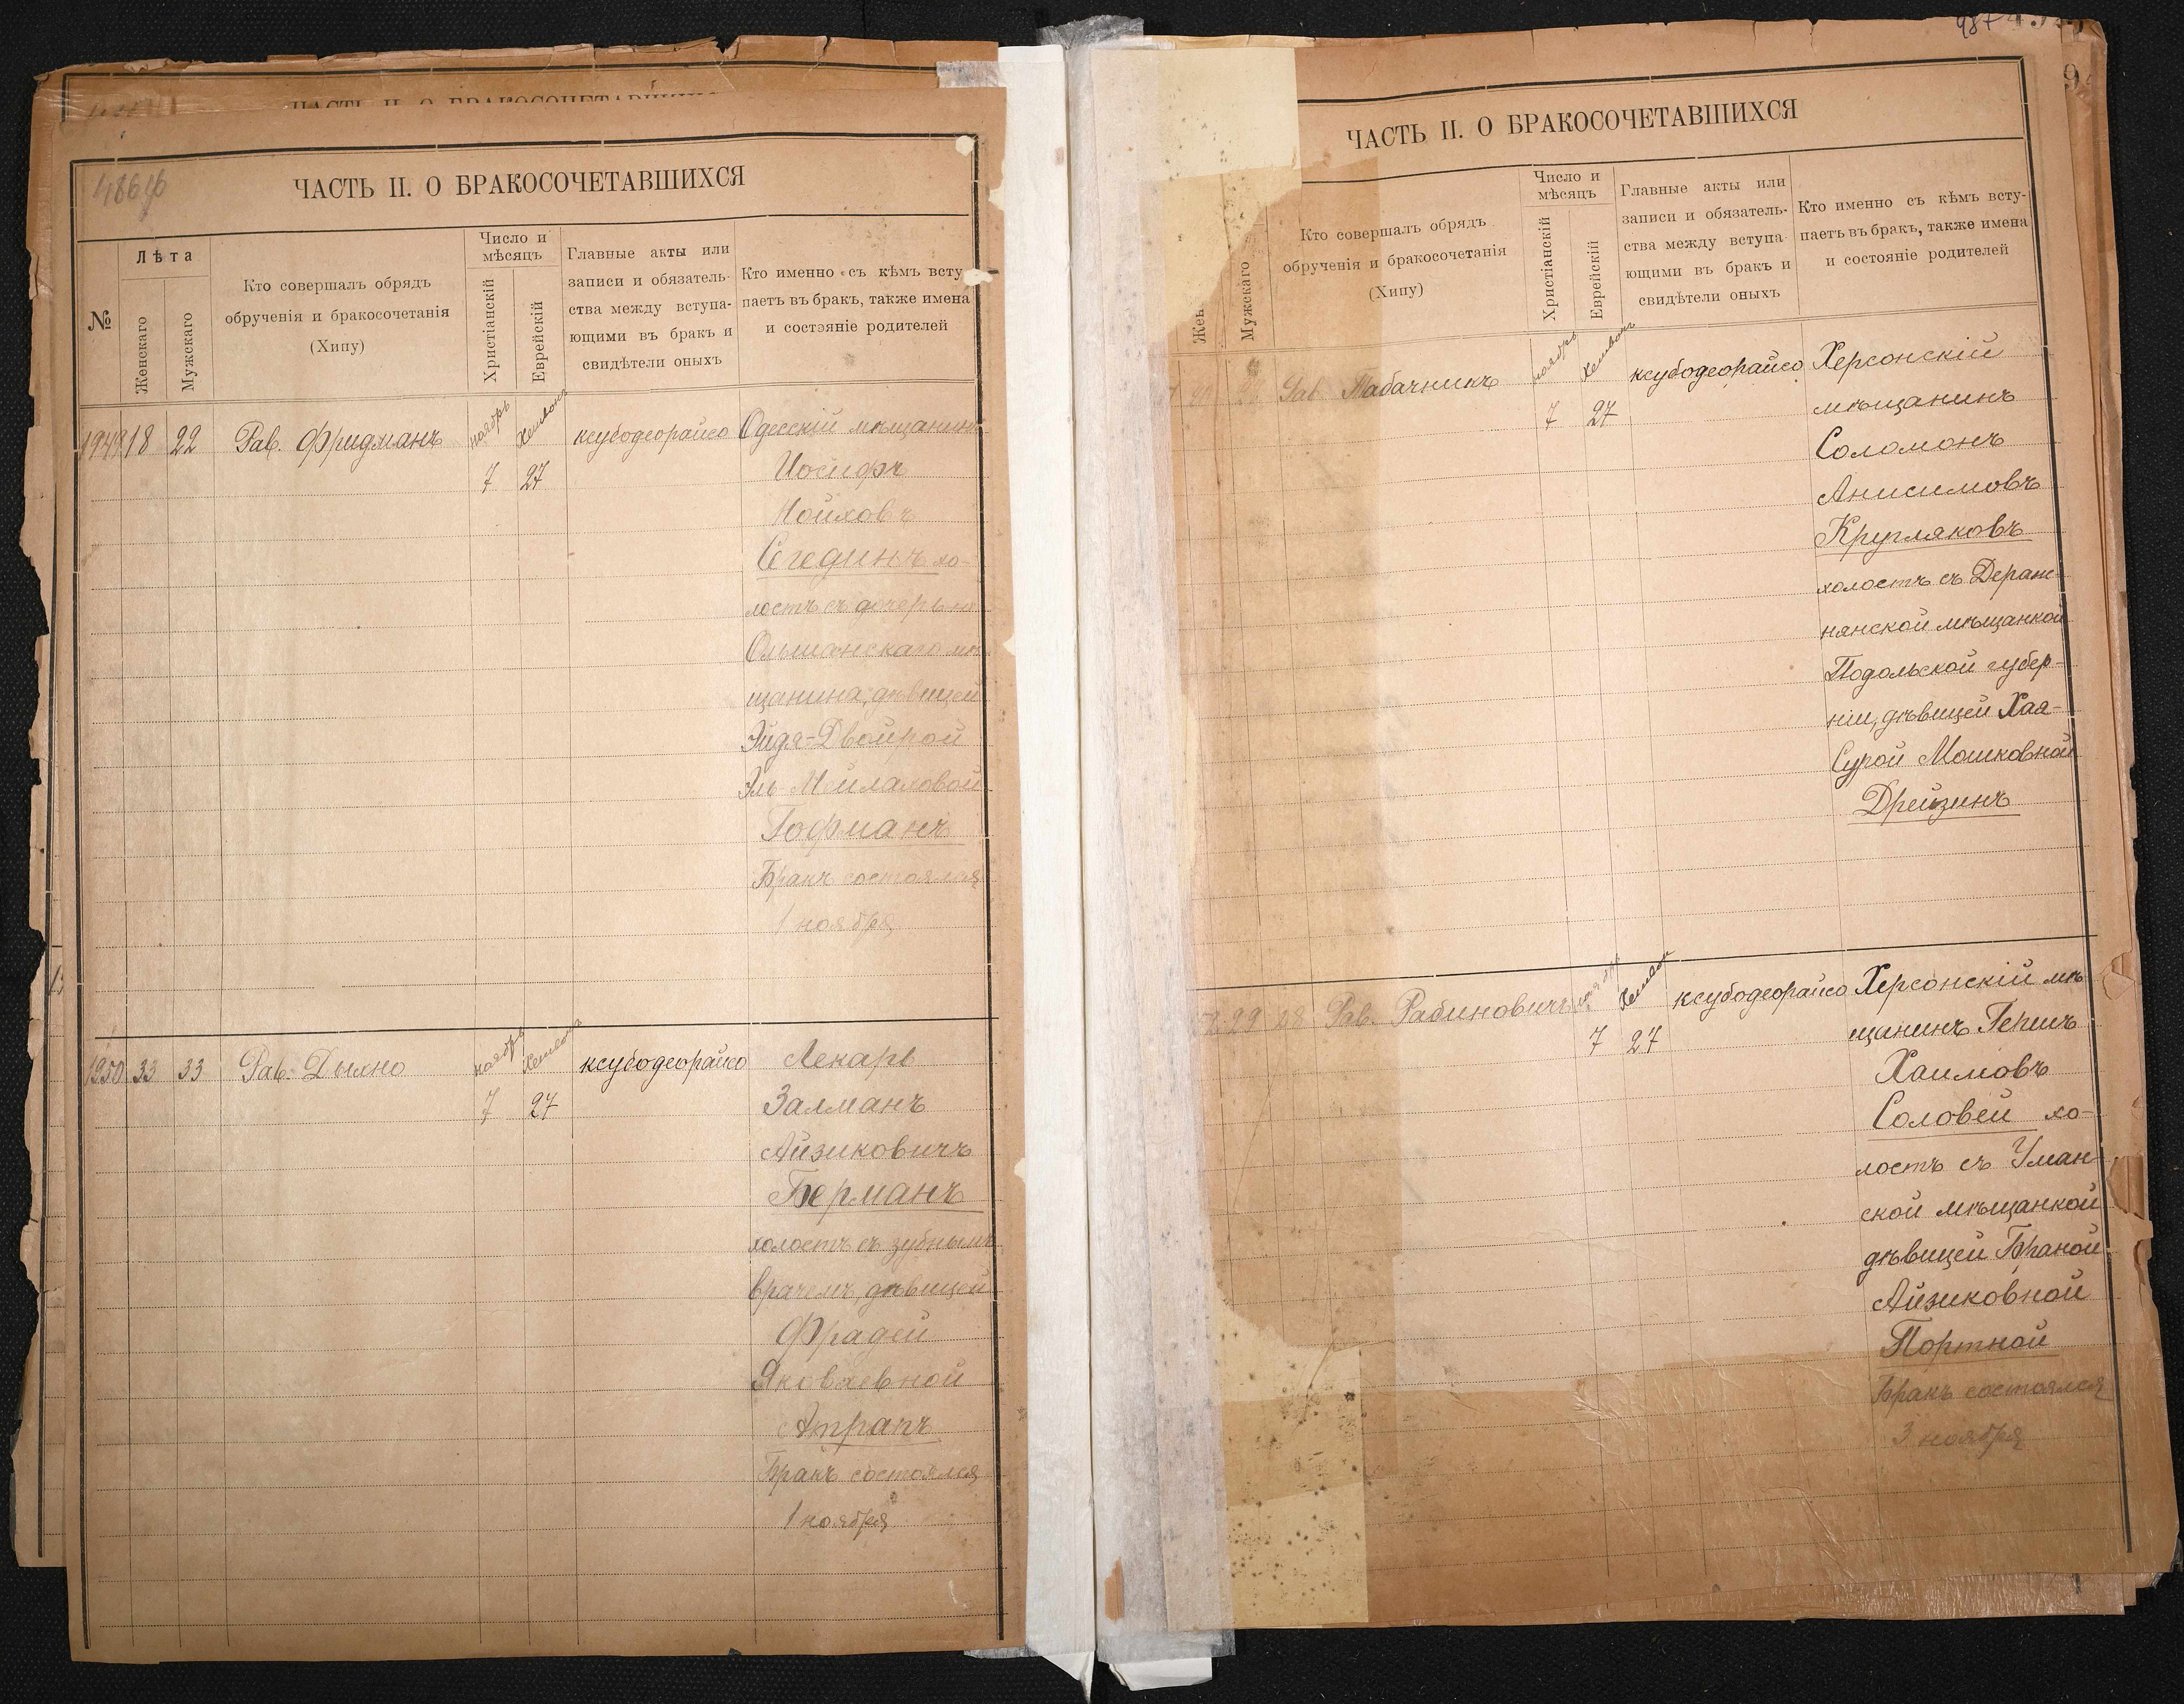 ЧАСТЬ II. О БРАКОСОЧЕТАВШИХСЯ
ЧАСТЬ II. О БРАКОСОЧЕТАВШИХСЯ
№
Лѣта
Женскаго
Мужскаго
Кто совершалъ обрядъ
обрученія и бракосочетанія
(Хипу)
Число и
мѣсяцъ
Христіанскій
Еврейскій
Главные акты или
записи и обязатель-
ства между вступа-
ющими въ бракъ и
свидѣтели оныхъ
Кто именно съ кѣмъ всту-
паетъ въ бракъ, также имена
и состояніе родителей
1949 18 22 Рав. Фридманъ ноябрь Хешвонъ ксубодеорайсо Одесскій мѣщанинъ
7 27 Іосифъ
Нойховъ
Сегединъ хо-
лостъ съ дочерью
Ольшанскаго мѣ-
щанина, дѣвицей
Эйдя-Двойрой
Эль-Мейлаховой
Гофманъ
Бракъ состоялся
1 ноября
1950 33 33 Рав. Дыхно ноябрь Хешвонъ ксубодеорайсо Лекарь
7 27 Залманъ
Айзиковичъ
Берманъ
холостъ съ зубнымъ
врачемъ, дѣвицей
Фрадей
Яковлевной
Атранъ
Бракъ состоялся
1 ноября
987
ЧАСТЬ II. О БРАКОСОЧЕТАВШИХСЯ
Жен
Мужскаго
Кто совершалъ обрядъ
обрученія и бракосочетанія
(Хипу)
Число и
мѣсяцъ
Христіанскій
Еврейскій
Главные акты или
записи и обязатель-
ства между вступа-
ющими въ бракъ и
свидѣтели оныхъ
Кто именно съ кѣмъ всту-
паетъ въ бракъ, также имена
и состояніе родителей
Рав. Табачникъ ноябрь Хешвонъ ксубодеорайсо Херсонскій
7 27 мѣщанинъ
Соломонъ
Анисимовъ
Кругляковъ
холостъ съ Деране-
нянской мѣщанкой
Подольской губер-
ніи, дѣвицей Хая-
Сурой Мошковной
Дрейзинъ
29 28 Рав. Рабиновичъ ноябрь Хешвон ксубодеорайсо Херсонскій мѣ
7 27 щанинъ Гершъ
Хаимовъ
Соловей хо-
лостъ съ Уман-
ской мѣщанкой
дѣвицей Браной
Айзиковной
Портной
Бракъ состоялся
3 ноября